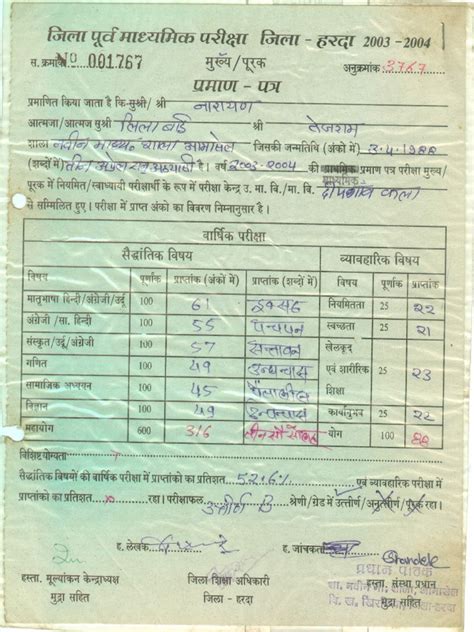 जिला पूर्व माध्यमिक परीक्षा जिला - हरदा 2003 -2004
स. क्रमांक No 001767 मुख्य/पूरक अनुक्रमांक 3767
प्रमाण - पत्र
प्रमाणित किया जाता है कि-सुश्री/ श्री नारायण
आत्मजा/आत्मज सुश्री लिला बाई श्री तेजराम
शाला नवीन माध्य. शाला आमासेल जिसकी जन्मतिथि (अंकों में) 3.4.1988
(शब्दों में) तीन अप्रैल है। वर्ष 2003-2004 की माध्यमिक प्रमाण पत्र परीक्षा मुख्य/
पूरक में नियमित/स्वाध्यायी परीक्षार्थी के रूप में परीक्षा केन्द्र उ. मा. वि./मा. वि. दीपगांव कला
से सम्मिलित हुए। परीक्षा में प्राप्त अंको का विवरण निम्नानुसार है।
वार्षिक परीक्षा
सैद्धांतिक विषय व्यावहारिक विषय
विषय पूर्णांक प्राप्तांक (अंकों में) प्राप्तांक (शब्दों में) विषय पूर्णांक प्राप्तांक
मातृभाषा हिन्दी/अंग्रेजी/उर्दू 100 61 इकसठ नियमितता 25 22
अंग्रेजी /सा. हिन्दी 100 55 पचपन स्वच्छता 25 21
संस्कृत/उर्दू/अंग्रेजी 100 57 सन्तावन खेलकूद
गणित 100 49 उन्पचास एवं शारीरिक 25 23
सामाजिक अध्ययन 100 45 पैंतालीस शिक्षा
विज्ञान 100 49 उन्पचास कार्यानुभव 25 22
महायोग 600 316 तीन सौ सोलह योग 100 88
विशिष्ट योग्यता
सैद्धांतिक विषयों की वार्षिक परीक्षा में प्राप्तांको का प्रतिशत 52.6% एवं व्यावहारिक परीक्षा में
प्राप्तांको का प्रतिशत रहा। परीक्षाफल उत्तीर्ण B श्रेणी/ग्रेड में उत्तीर्ण/अनुत्तीर्ण/पूरक रहा।
ह. लेखक ह. जांचकर्ता
प्रधान पाठक
हस्ता. मूल्यांकन केन्द्राध्यक्ष जिला शिक्षा अधिकारी हस्ता. संस्था प्रधान
मुद्रा सहित जिला - हरदा मुद्रा सहित